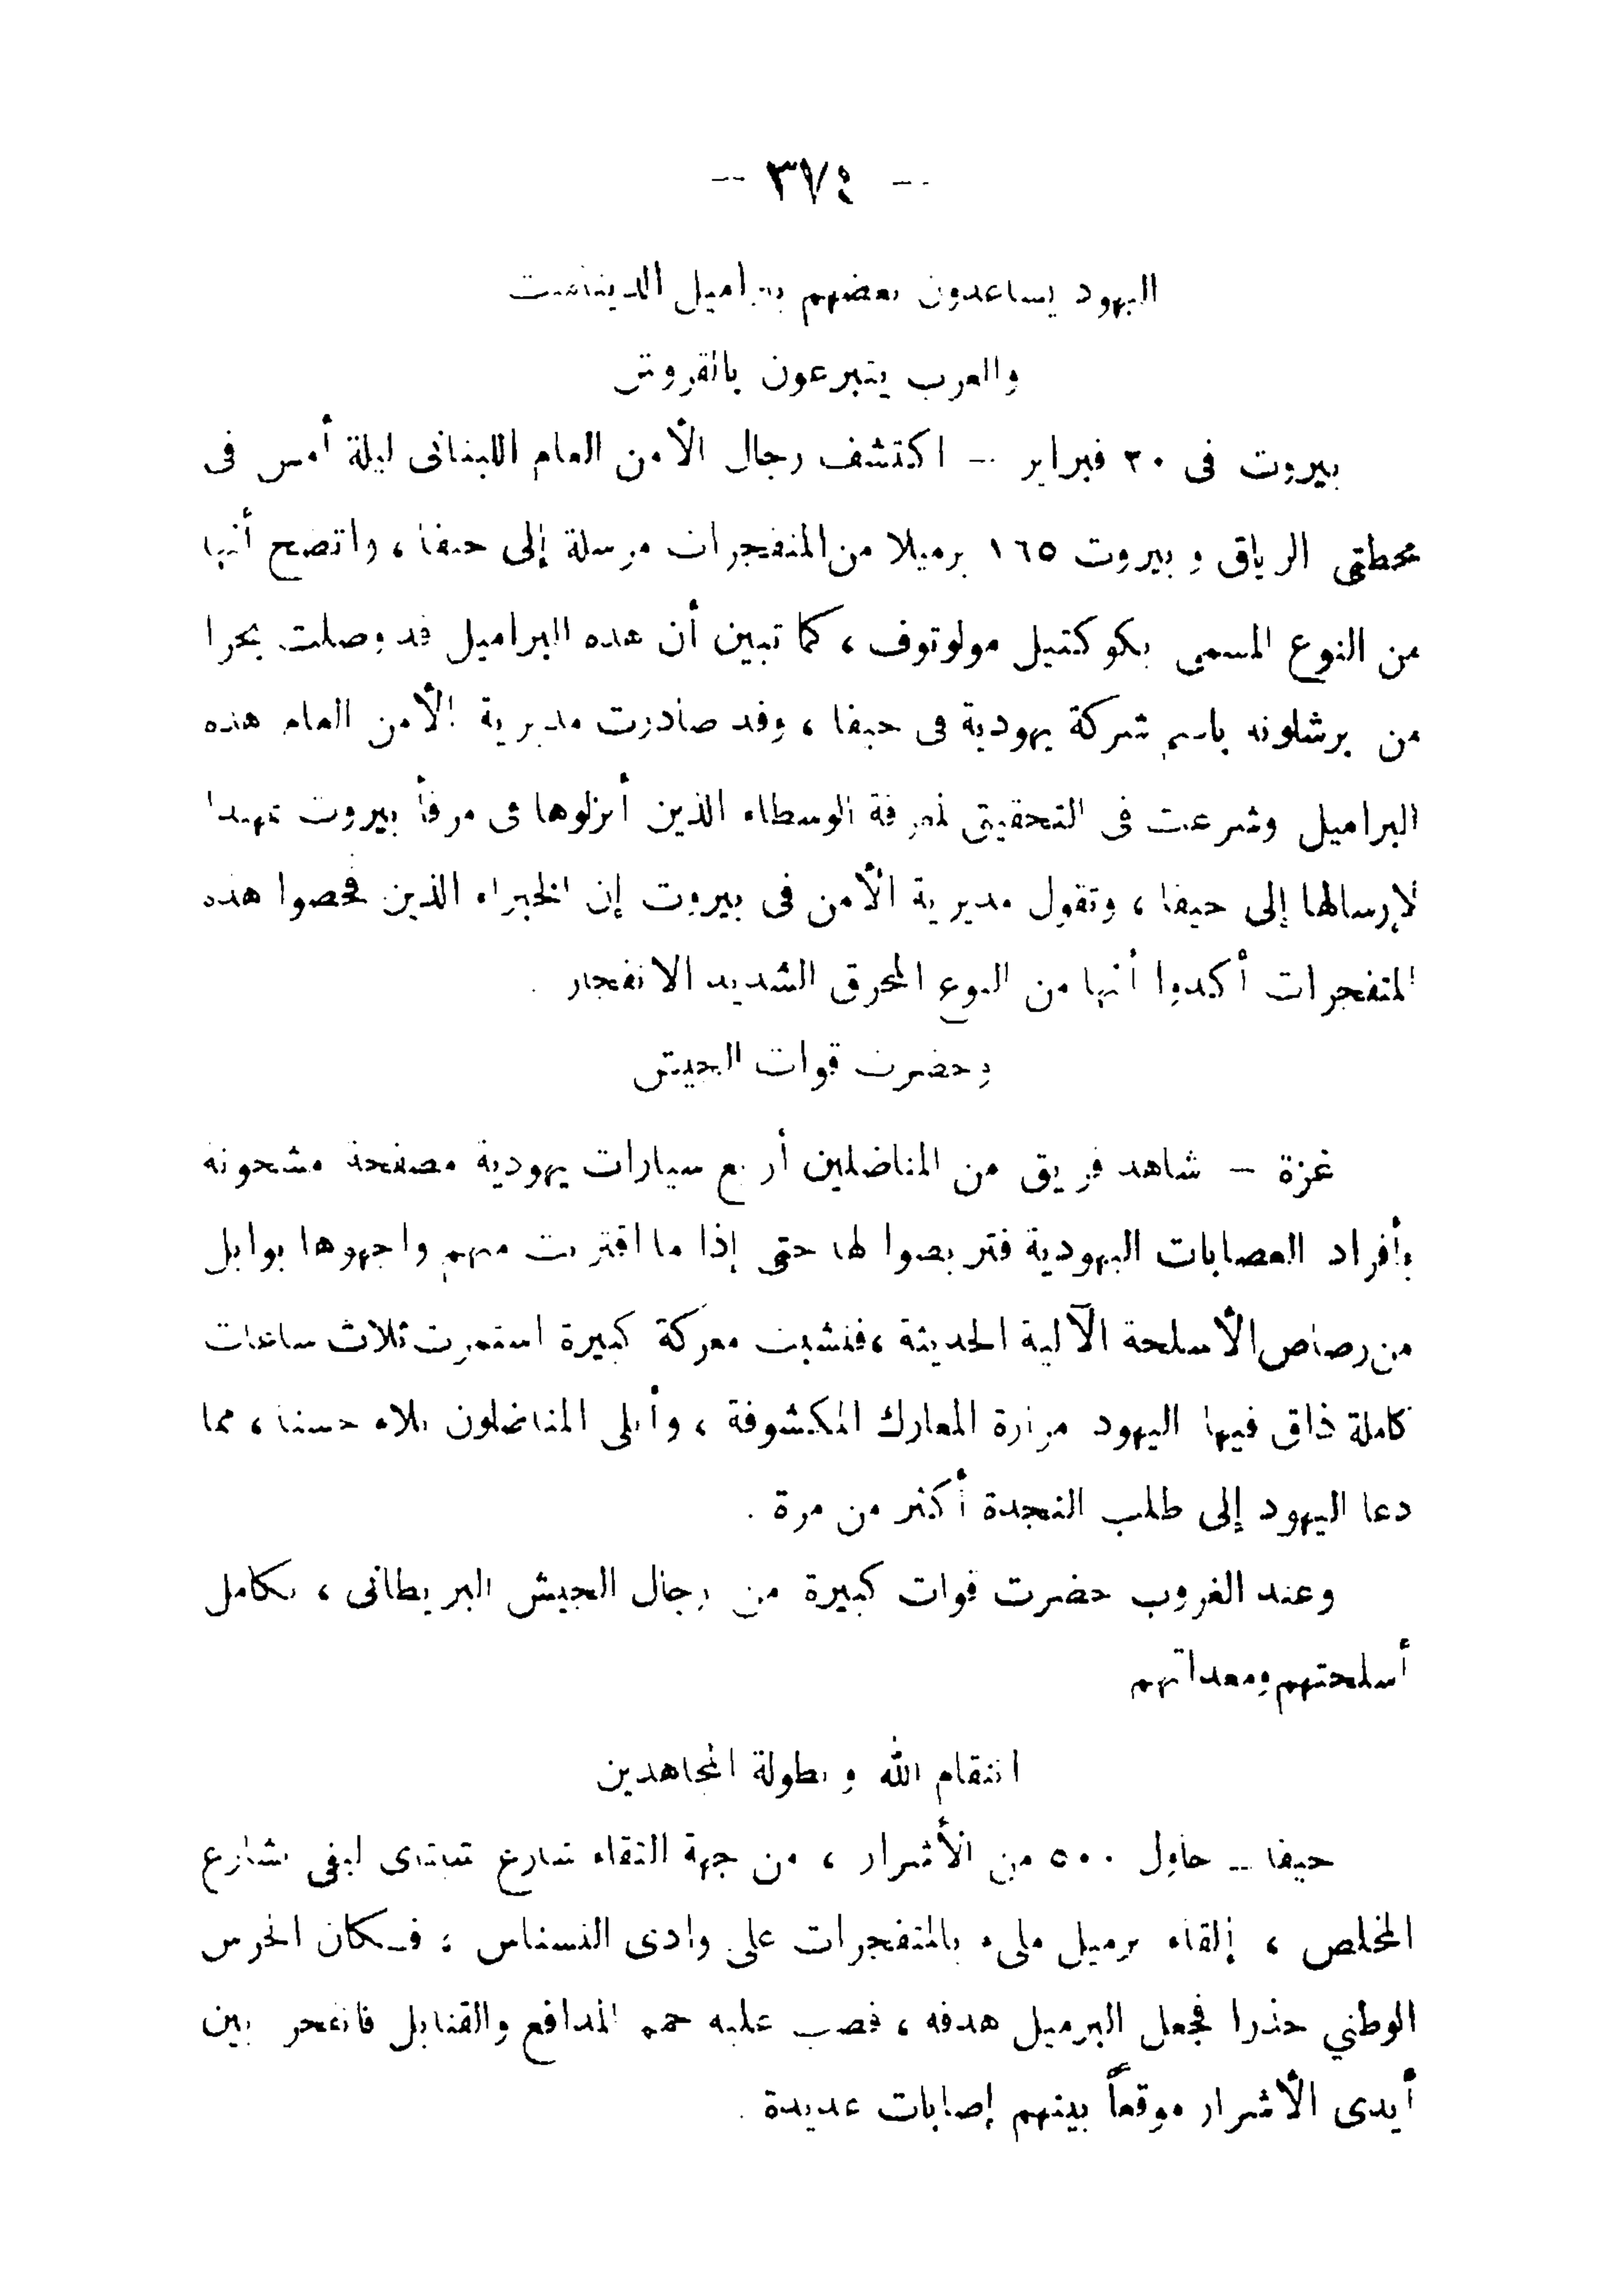 -- ٣٧٤ --
اليهود يساعدون بعضهم ببراميل الديناميت
والعرب يتبرعون بالقروش
بيروت فى ٢٠ فبراير -- اكتشف رجال الأمن العام اللبنانى ليلة أمس فى
محطتى الرياق و بيروت ١٦٥ برميلا من المتفجرات مرسلة إلى حيفا ، واتضح أنها
من النوع المسمى بكوكتيل مولوتوف ، كما تبين أن هذه البراميل قد وصلت بحرا
من برشلونه باسم شركة يهودية فى حيفا ، وقد صادرت مديرية الأمن العام هذه
البراميل وشرعت فى التحقيق لمعرفة الوسطاء الذين أنزلوها فى مرفأ بيروت تمهيدا
لإرسالها إلى حيفا ، وتقول مديرية الأمن فى بيروت إن الخبراء الذين فحصوا هذه
المتفجرات أكدوا أنها من النوع المحرق الشديد الانفجار .
وحضرت قوات الجيش
غزة - شاهد فريق من المناضلين أربع سيارات يهودية مصفحة مشحونة
بأفراد العصابات اليهودية فتربصوا لها حتى إذا ما اقتربت منهم واجهوها بوابل
من رصاص الأسلحة الآلية الحديثة ، فنشبت معركة كبيرة استمرت ثلاث ساعات
كاملة ذاق فيها اليهود مرارة المعارك المكشوفة ، وأبلى المناضلون بلاء حسنا ، مما
دعا اليهود إلى طلب النجدة أكثر من مرة .
وعند الغروب حضرت قوات كبيرة من رجال الجيش البريطانى ، بكامل
أسلحتهم ومعداتهم
انتقام الله و بطولة المجاهدين
حيفا -- حاول ٥٠٠ من الأشرار ، من جهة التقاء شارع تبتدى ليفى بشارع
المخلص ، إلقاء برميل ملىء بالمتفجرات على وادى النسناس ، فكان الحرس
الوطني حذرا فجعل البرميل هدفه ، فصب عليه حمم المدافع والقنابل فانفجر بين
أيدى الأشرار موقعاً بينهم إصابات عديدة .